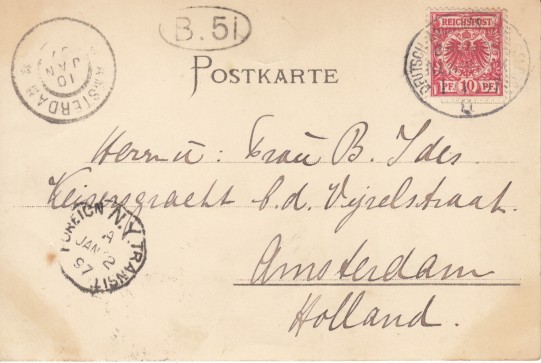 B. 51
AMSTERDAM
10
JAN
97
POSTKARTE
REICHSPOST
10
PF. 10 PF.
DEUTSCH
Herrn u: Frau B. Ides.
Keizersgracht b.d. Vijzelstraat.
N.Y.
FOREIGN TRANSIT
A
JAN 2
97
Amsterdam
Holland.